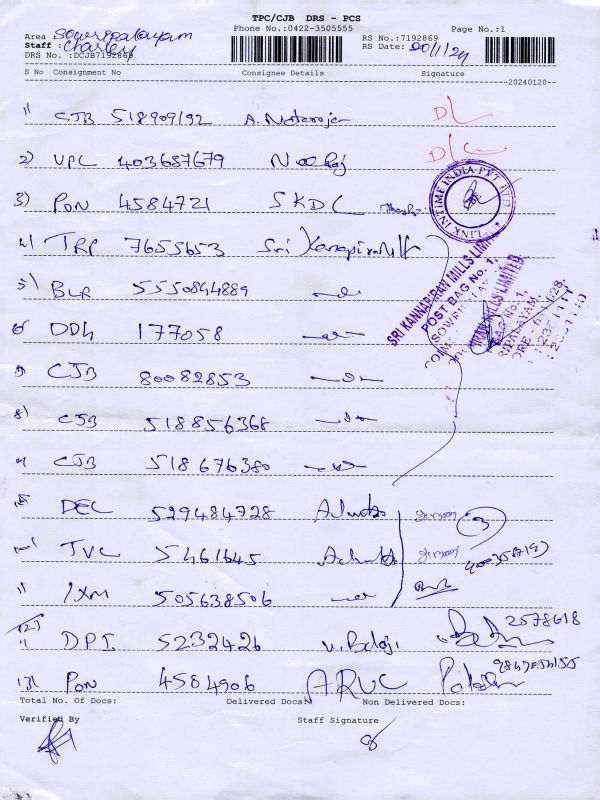 TPC/CJB DRS - PCS
Phone No.:0422-3505555
Page No.:1
Area : Sowripalayam
Staff : Charley
DRS No. :DCJB7192869
RS No.:7192869
RS Date: 20/1/24
S No Consignment No Consignee Details Signature
20240120
1) CJB 518909192 A. Natarajan DL
2) VPC 403687679 Neeraj D/C
3) PON 4584721 SKDC
LINK INTIME INDIA PVT LTD
4) TRP 7655653 Sri
SRI KANNAPIRAN MILLS LIMITED
POST BAG No. 1,
5) BLR 5550844889
6) DDL 177058
7) CJB 80082853
8) CJB 518856368
9) CJB 518676380
DEL 529484728 3
TVC 5461645
11 IXM 505638506
12) DPI 5232426 V. Balaji 2578618
13) PON 4584906 ARUC
Total No. Of Docs: Delivered Docs: Non Delivered Docs:
Verified By Staff Signature